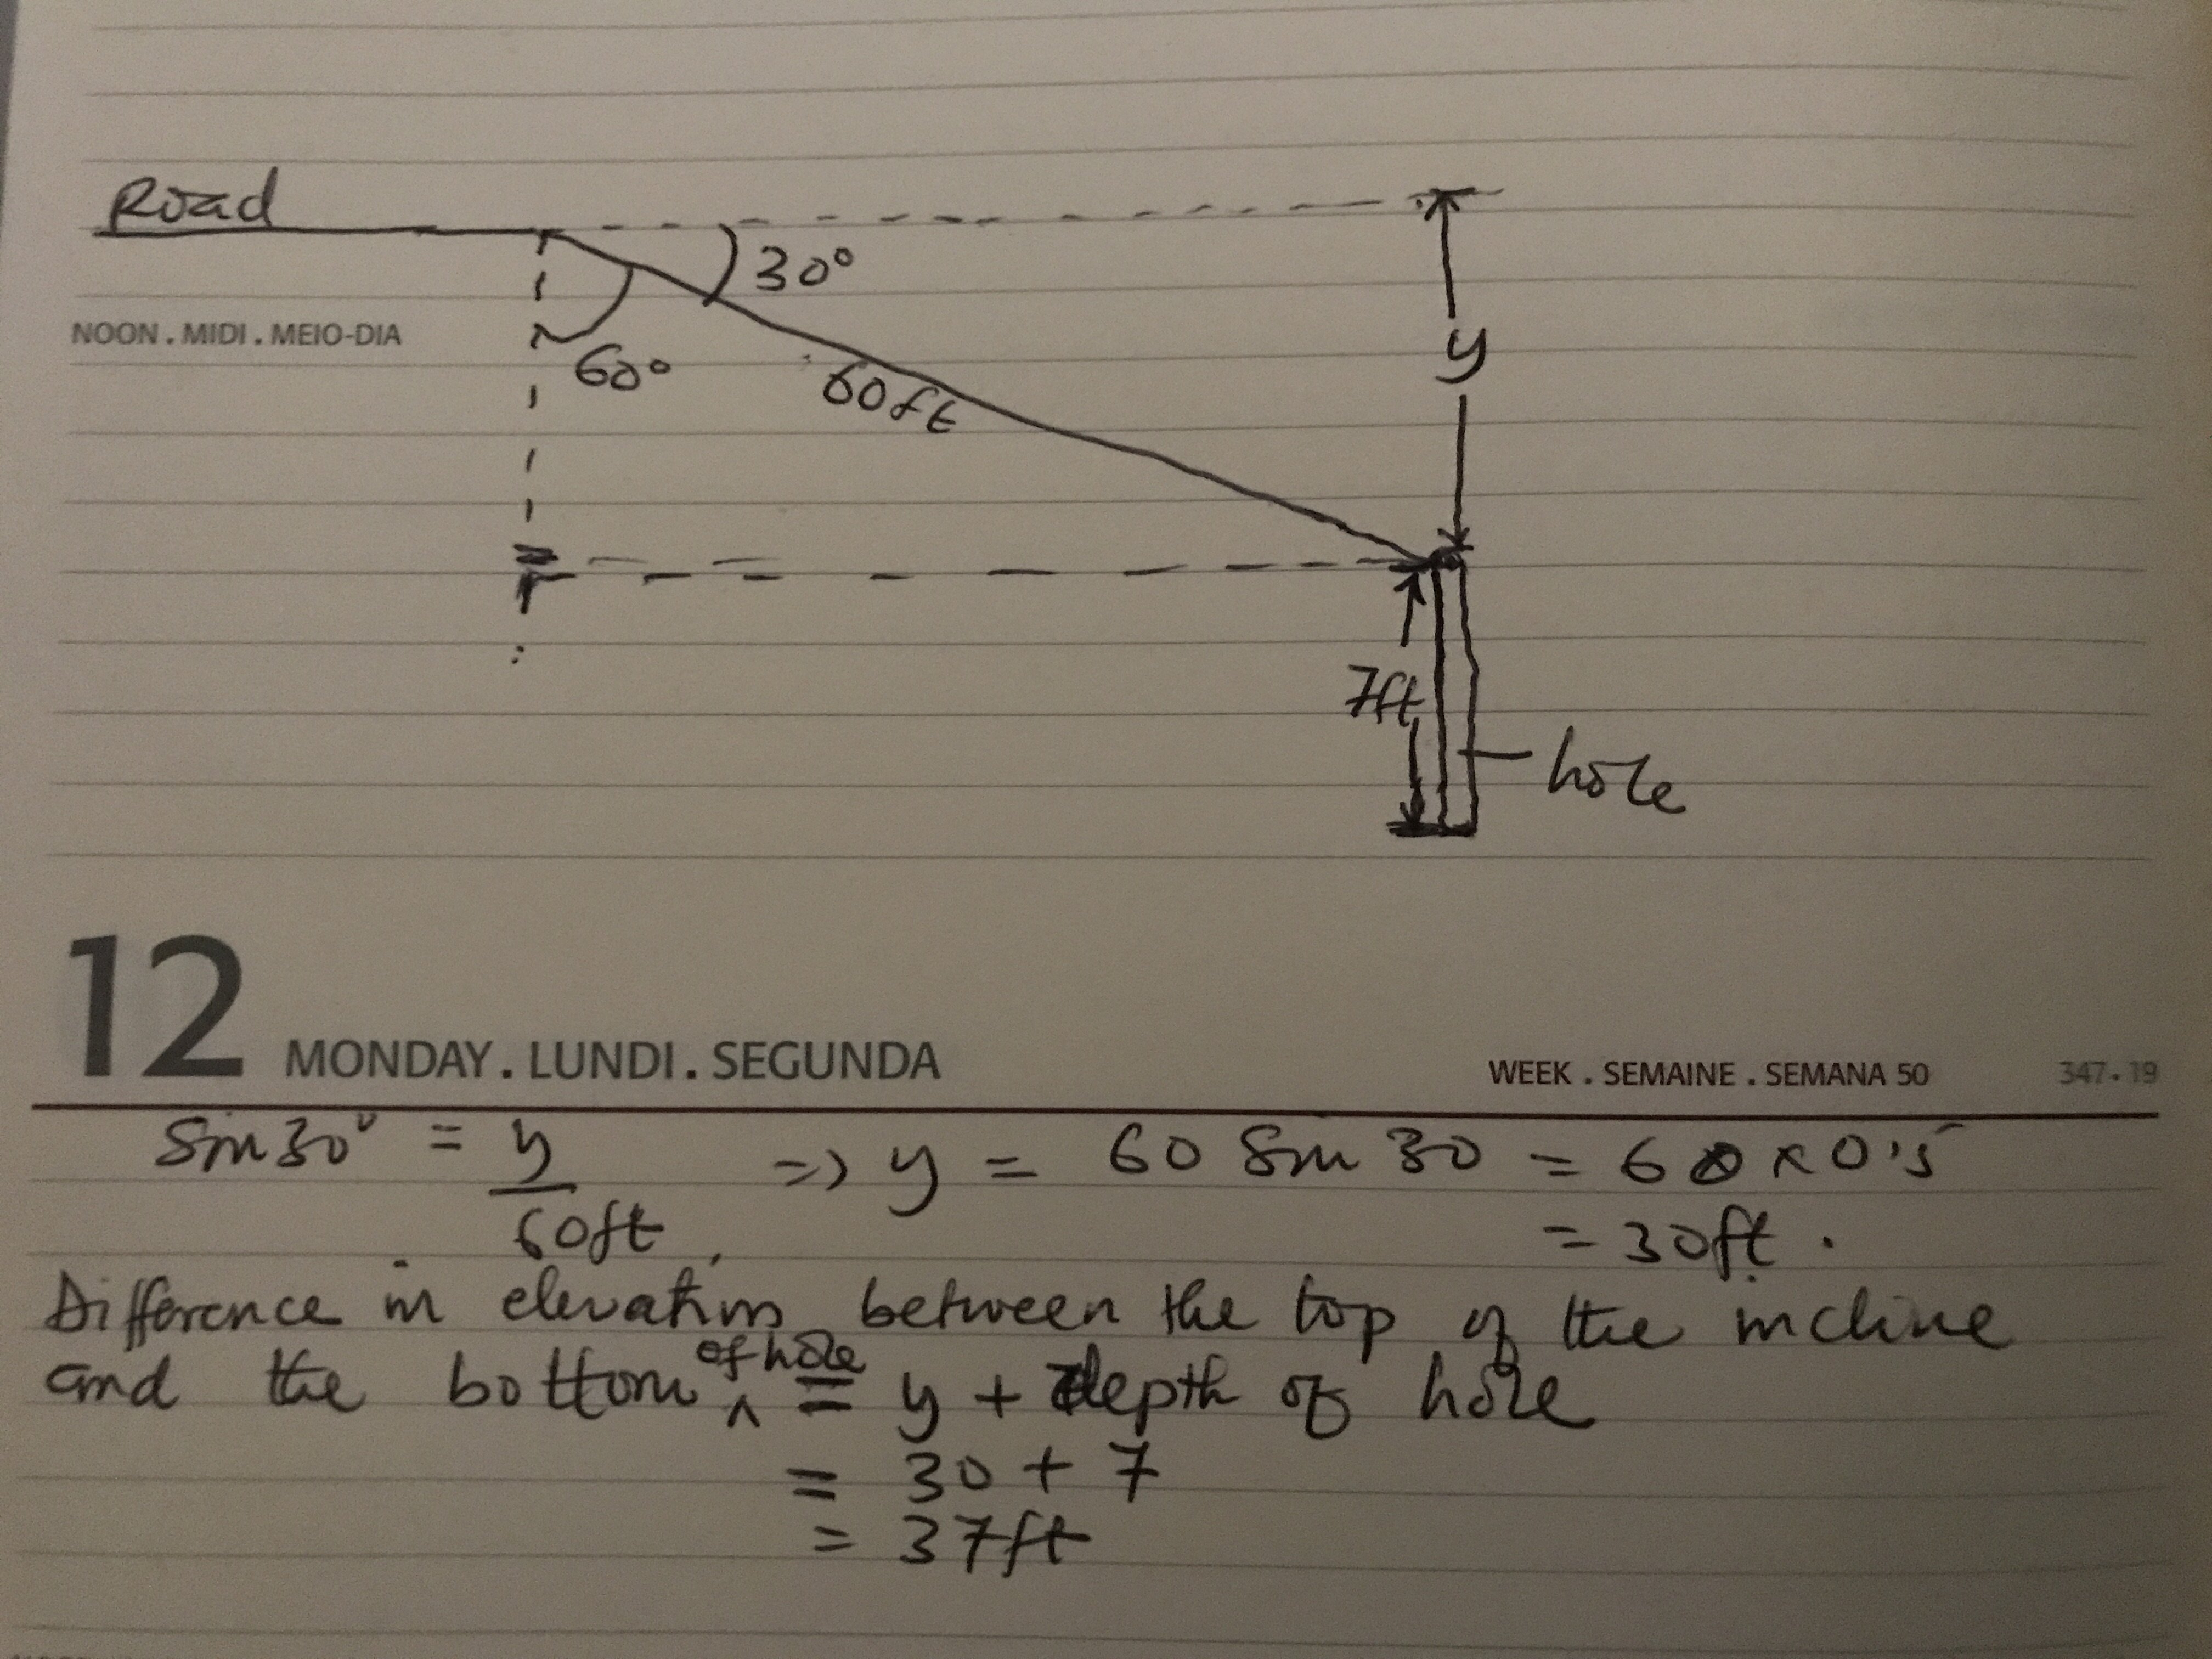 Road
30°
NOON . MIDI . MEIO-DIA
60°
60ft
y
7ft
hole
12 MONDAY . LUNDI . SEGUNDA
WEEK . SEMAINE . SEMANA 50 347-19
Sin 30° = y/60ft => y = 60 Sin 30 = 60 x 0.5
= 30ft.
Difference in elevation between the top of the incline
and the bottom of hole = y + depth of hole
= 30 + 7
= 37ft